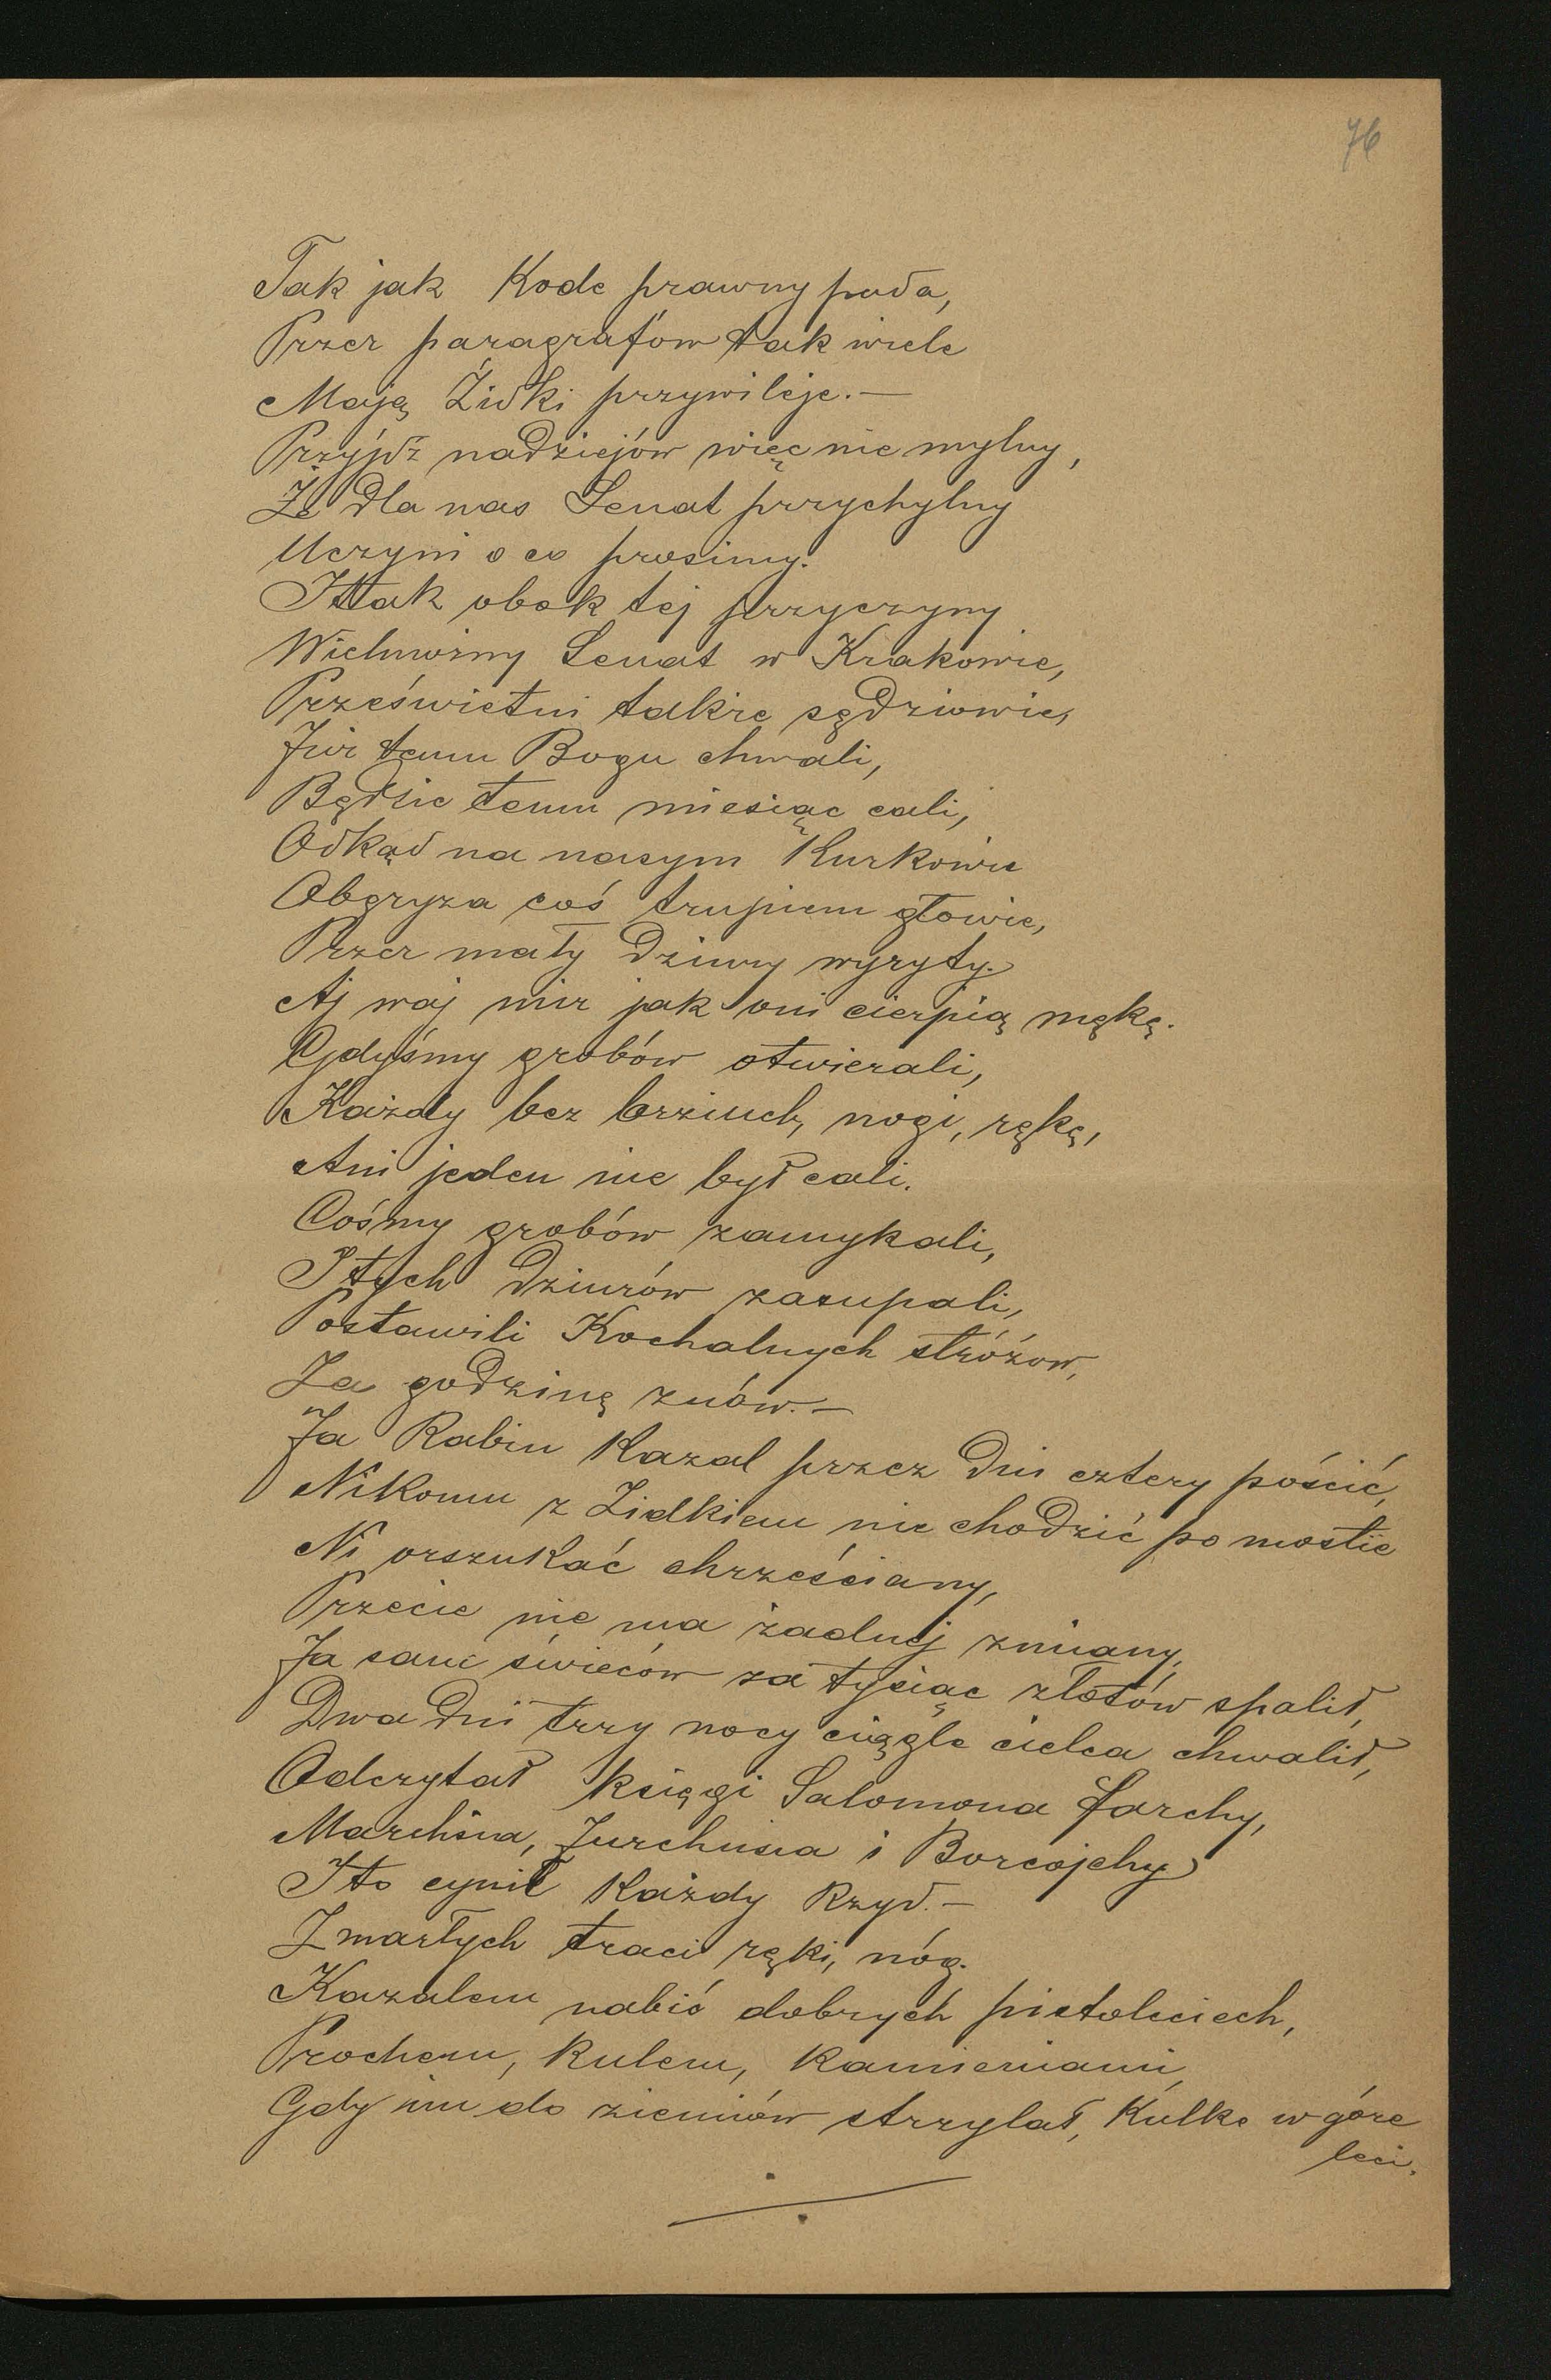 76
Tak jak Kode prawny poda,
Przez paragrafów tak wiele
Mają Żidki przywileje. —
Przyjdź nadziejów więc nie mylny,
Że dla nas Senat przychylny
Uczyni o co prosimy.
I tak obok tej przyczyny
Wielmożny Senat w Krakowie,
Prześwietni także sędziowie,
Już temu Bogu chwali,
Będzie temu miesiąc cali,
Odkąd na nasym Kurkowie
Obgryza coś trupiem głowie,
Przez mały dziury wyryty.
Aj waj mir jak oni cierpią mękę.
Gdyśmy grobów otwierali,
Każdy bez brziuch, nogi, rękę,
Ani jeden nie był cali.
Cośmy grobów zamykali,
I tych dziurów zasupali,
Postawili Kochalnych stróżow,
Za godzinę znów. —
Ja Rabin Kazal przez dni cztery pościć,
Nikomu z Zidkiem nie chodzić po mostie
Ni orszukać chrześciany,
Przecie nie ma żadnej zmiany,
Ja sam świeców za tysiąc złotów spalił,
Dwa dni trzy nocy ciągle cielca chwalił,
Odczytał księgi Salomona Jarchy,
Marchisia, Jurchusia i Borcojchy
I to cynił każdy Rzyd. —
Zmarłych traci ręki, nóg.
Kazalem nabić dobrych pistoleciech,
Prochem, kulem, kamieniami,
Gdy im do ziemiów strzylał, Kulke w góre
leci.